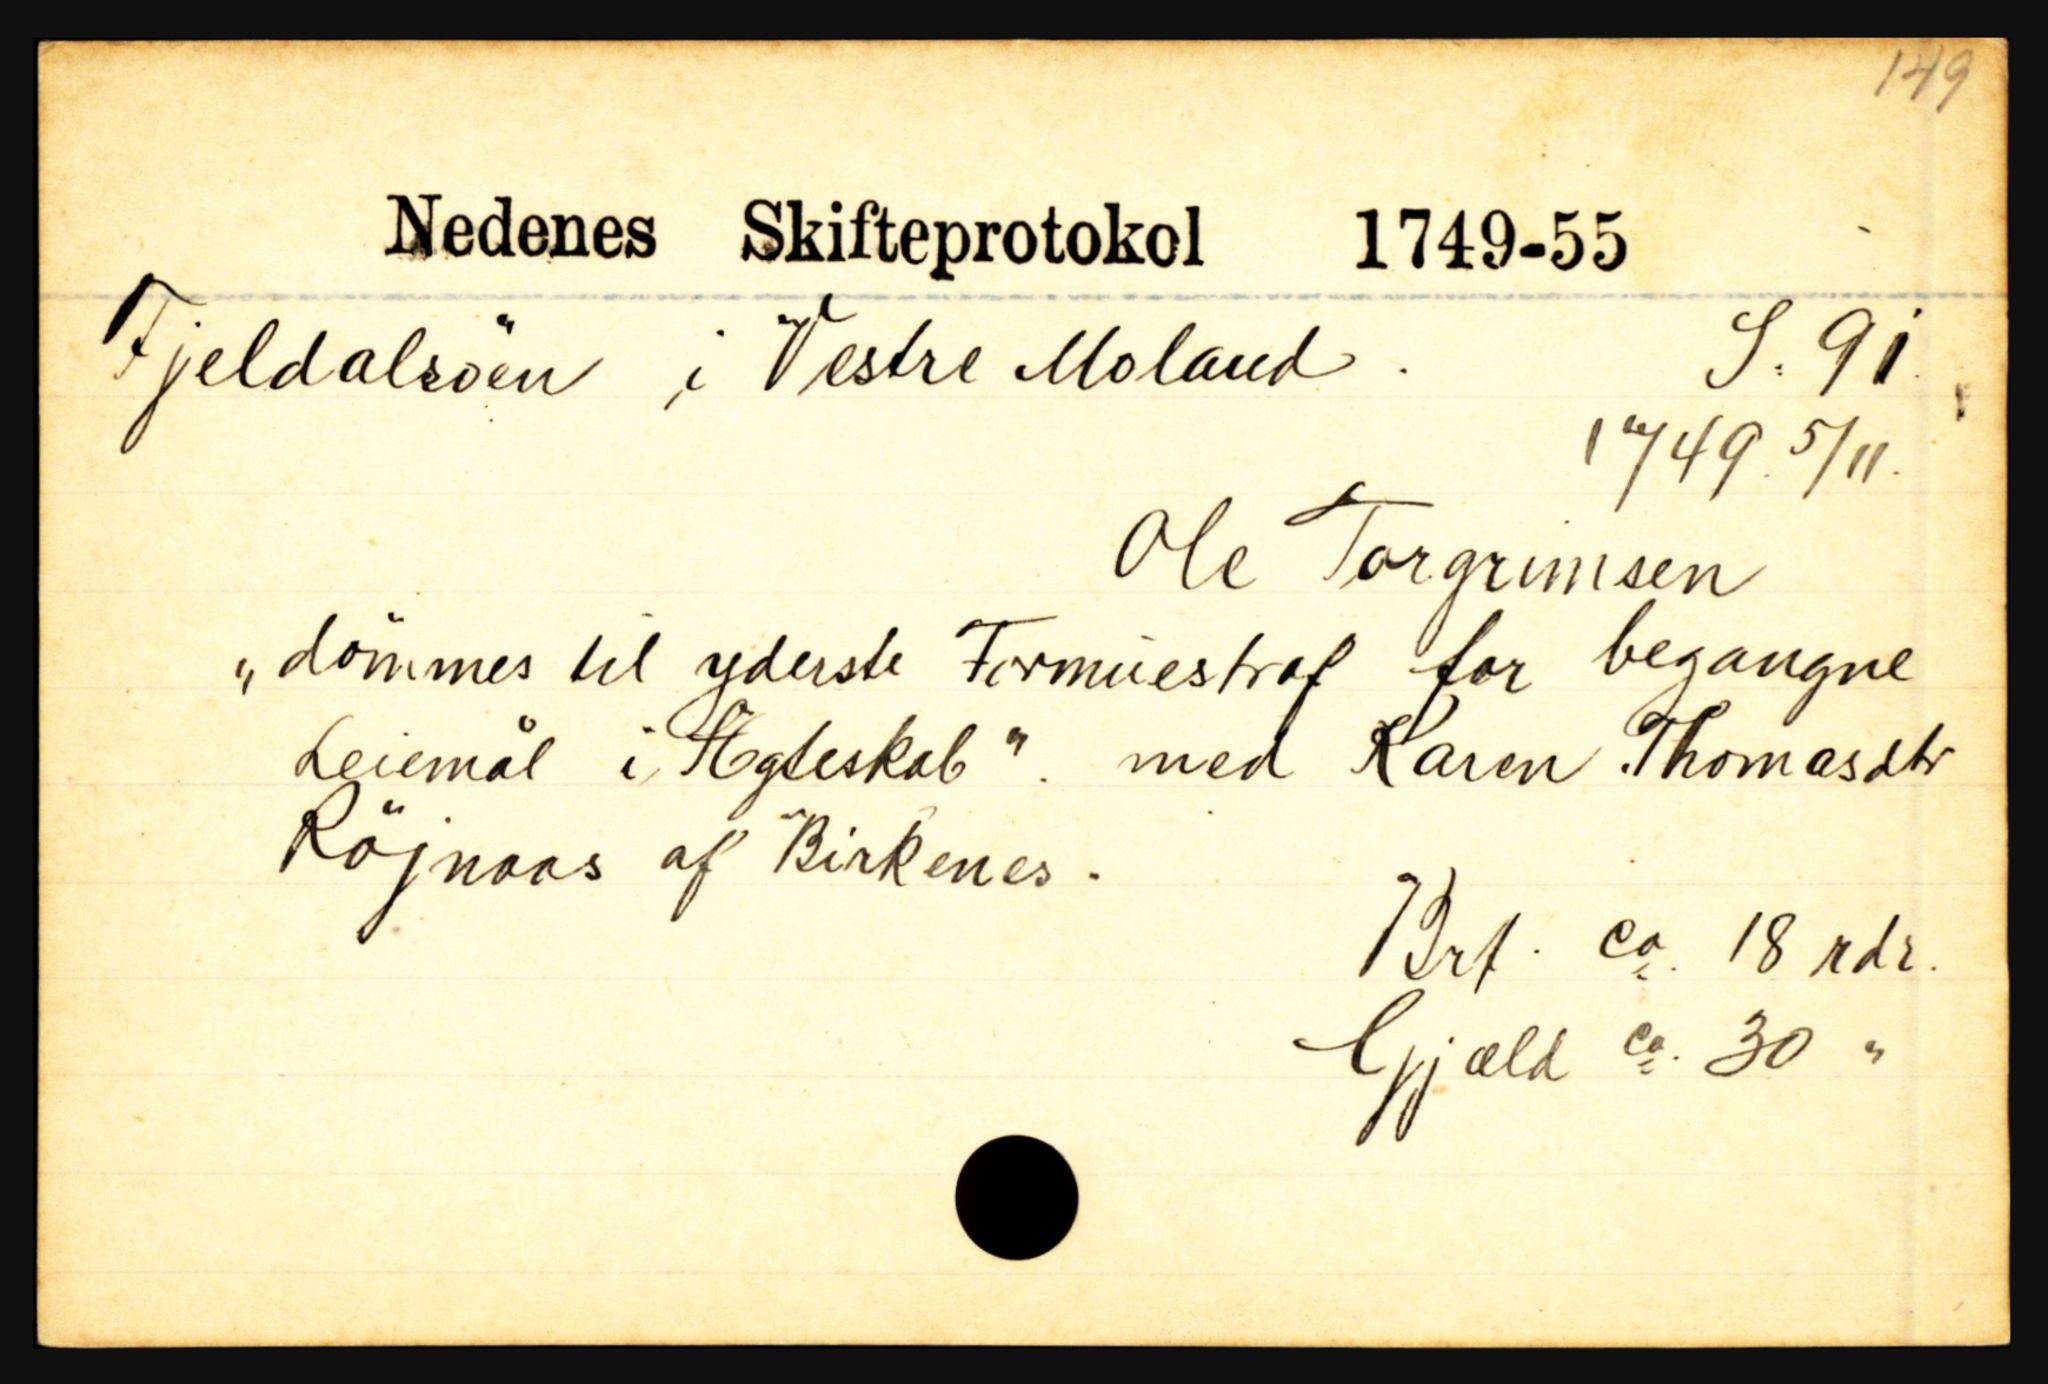 149
Nedenes Skifteprotokol 1749-55
Fjeldalsöen i Vestre Moland. S. 91.
1749. 5/11.
Ole Torgrimsen
„dömmes til yderste Formuestraf for begangne
Leiemål i Ægteskab". med Karen Thomasdtr
Röjnaas af Birkenes.
Brt. ca. 18 rdr.
Gjæld ca. 30 "